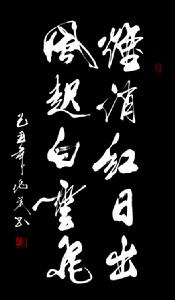 烟消红日出
风起白云飞
己丑年